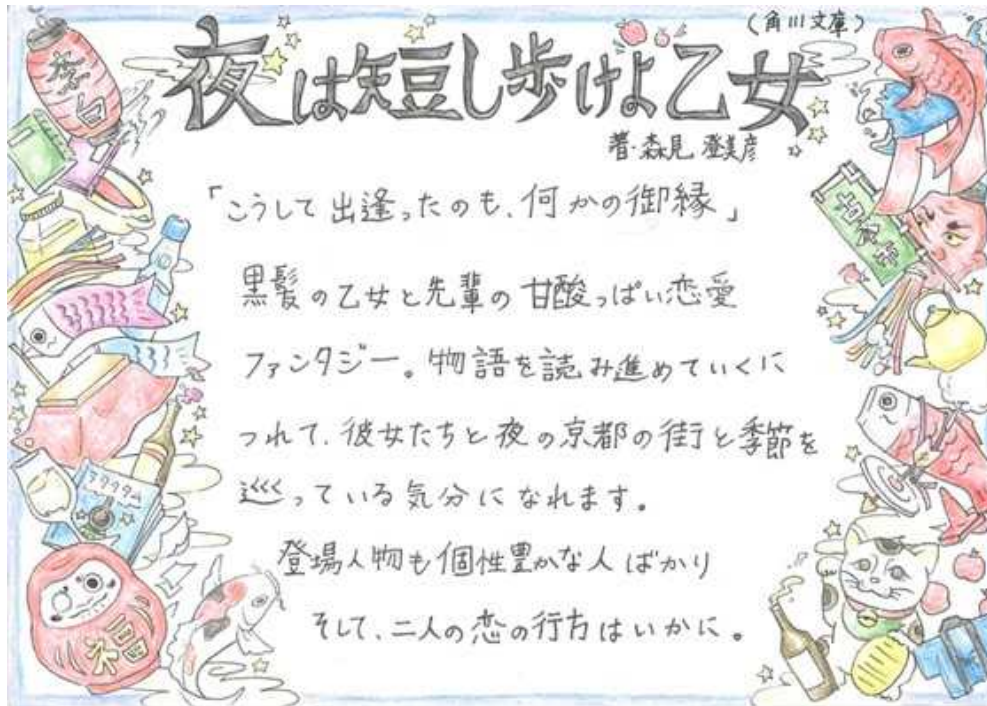 (角川文庫)
夜は短し歩けよ乙女
著・森見 登美彦
「こうして出逢ったのも、何かの御縁」
黒髪の乙女と先輩の甘酸っぱい恋愛
ファンタジー。物語を読み進めていくに
つれて、彼女たちと夜の京都の街と季節を
巡っている気分になれます。
登場人物も個性豊かな人ばかり
そして、二人の恋の行方はいかに。
李白
古本市
福